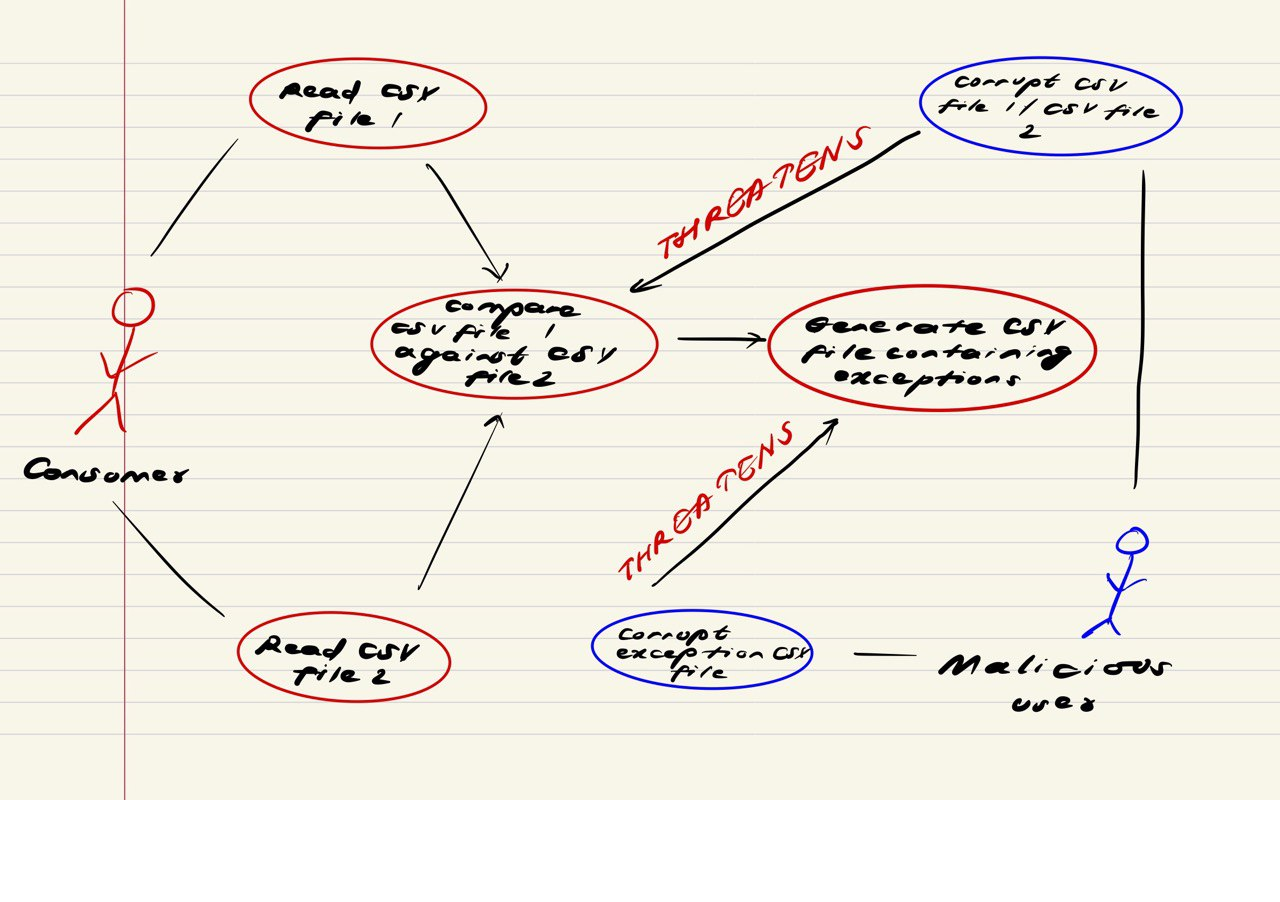 Read CSV
file 1
Corrupt CSV
file 1 / CSV file
2
THREATENS
Compare
CSV file 1
against CSV
file 2
Generate CSV
file containing
exceptions
Consumer
THREATENS
Read CSV
file 2
Corrupt
exception CSV
file
Malicious
user